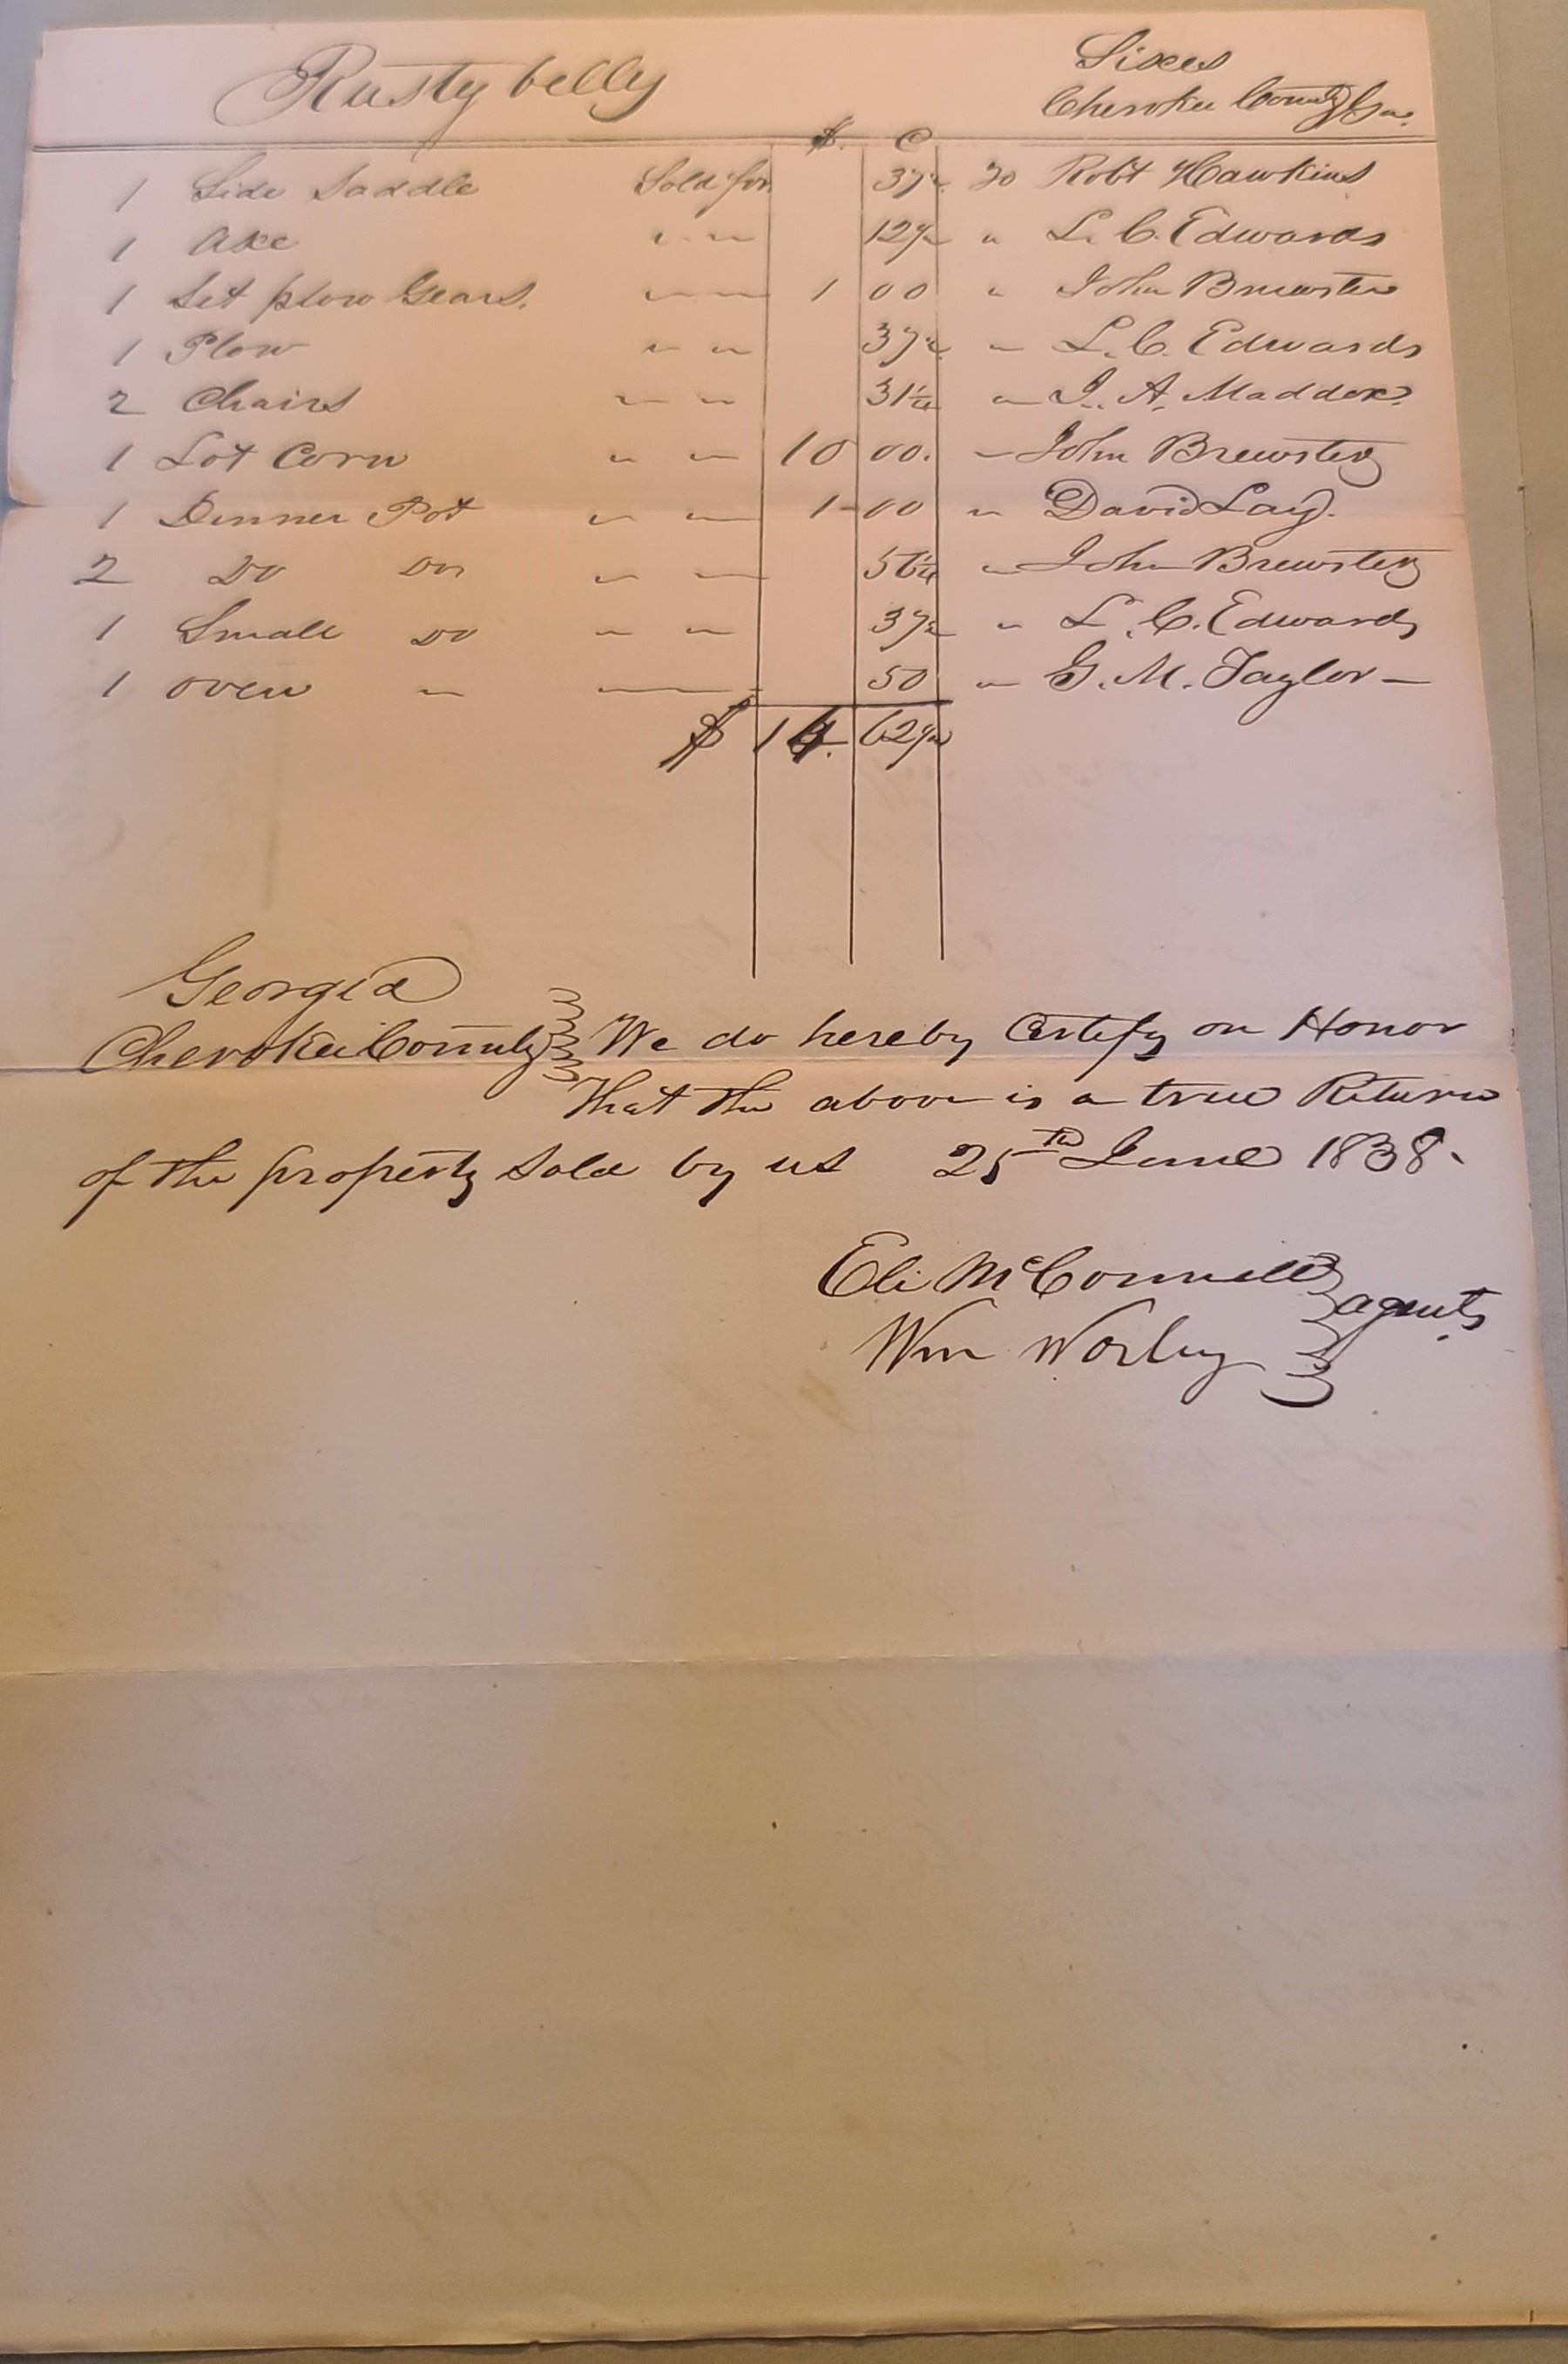 Rusty belly
Sixes
Cherokee County Ga.
$. C
1 Side Saddle Sold for 37½ To Robt Hawkins
1 Axe " " 12½ " L. C. Edwards
1 Set plow Gears. " " 1 00 " John Brewster
1 Plow " " 37½ " L. C. Edwards
2 Chairs " " 31¼ " J. A. Maddox
1 Lot Corn " " 10 00. " John Brewster
1 Dinner Pot " " 1 00 " David Lay.
2 Do Do " " 56¼ " John Brewster
1 Small Do " " 37½ " L. C. Edwards
1 oven " " 50 " G. M. Taylor
$ 14. 62½
Georgia
Cherokee County } We do hereby Certify on Honor
that the above is a true Return
of the property Sold by us 25th June 1838.
Eli McConnell
} agents
Wm Worley